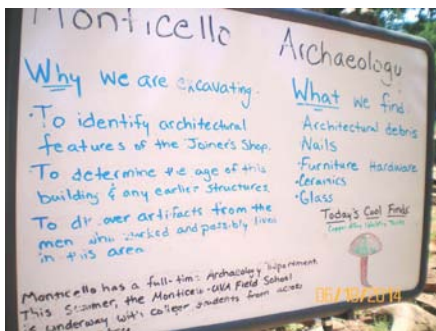 Monticello Archaeology
Why we are excavating.
To identify architectural
features of the Joiner's Shop.
To determine the age of this
building & any earlier structures.
To discover artifacts from the
men who worked and possibly lived
in this area
What we find
Architectural debris
Nails
·Furniture Hardware
·Ceramics
·Glass
Today's Cool Finds
Monticello has a full-time Archaeology Department
This Summer, the Monticello-UVA Field School
is underway with college students from across
06/18/2014